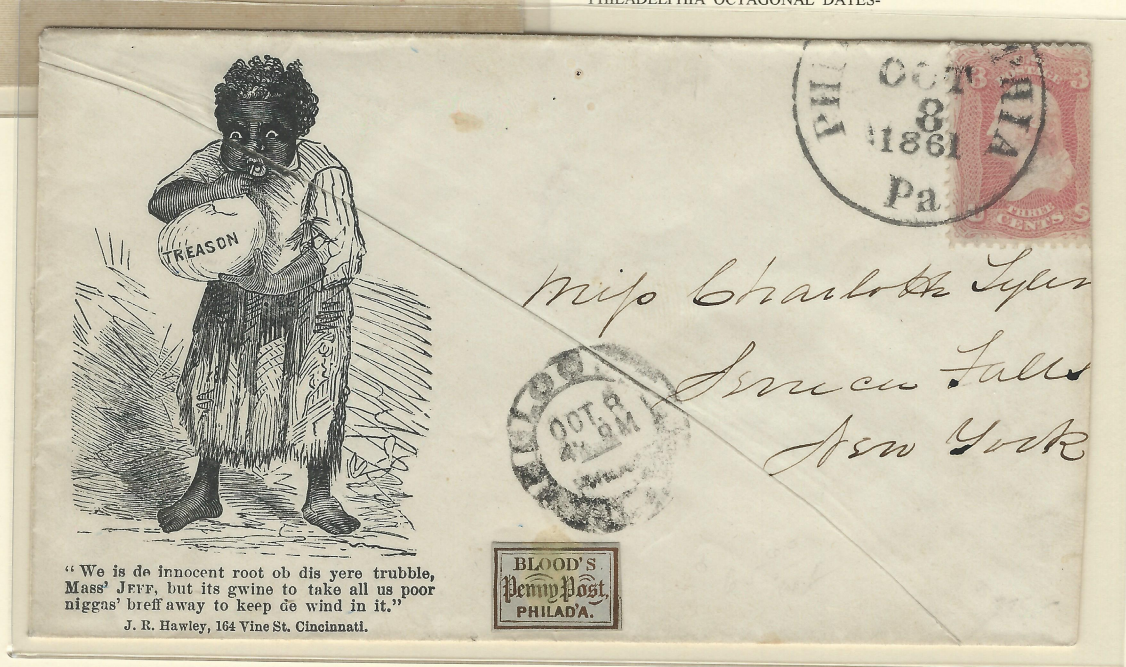 PHILADELPHIA OCTAGONAL DATES-
OCT
8
1861
Pa
3 3
THREE
CENTS
TREASON
Miss Charlotte Tyler
Seneca Falls
New York
BLOOD'S
OCT. 8
BLOOD'S
Penny Post,
PHILAD'A.
“ We is de innocent root ob dis yere trubble,
Mass' JEFF, but its gwine to take all us poor
niggas' breff away to keep de wind in it.”
J. R. Hawley, 164 Vine St. Cincinnati.